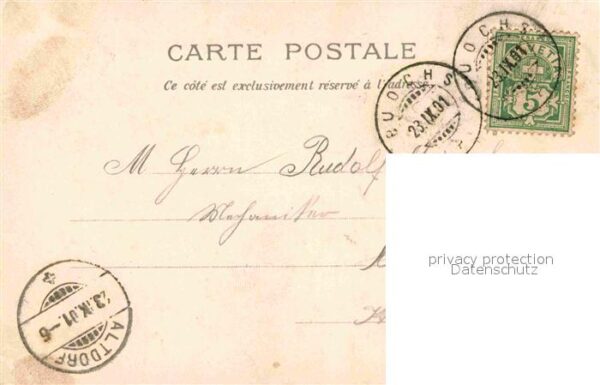 CARTE POSTALE
Ce côté est exclusivement réservé à l'adresse
BUOCHS
23.IX.01
BUOCHS
23.IX.01
HELVETIA
5
M Herrn Rudolf
Mechaniker
privacy protection
Datenschutz
23.IX.01.-6
ALTDORF